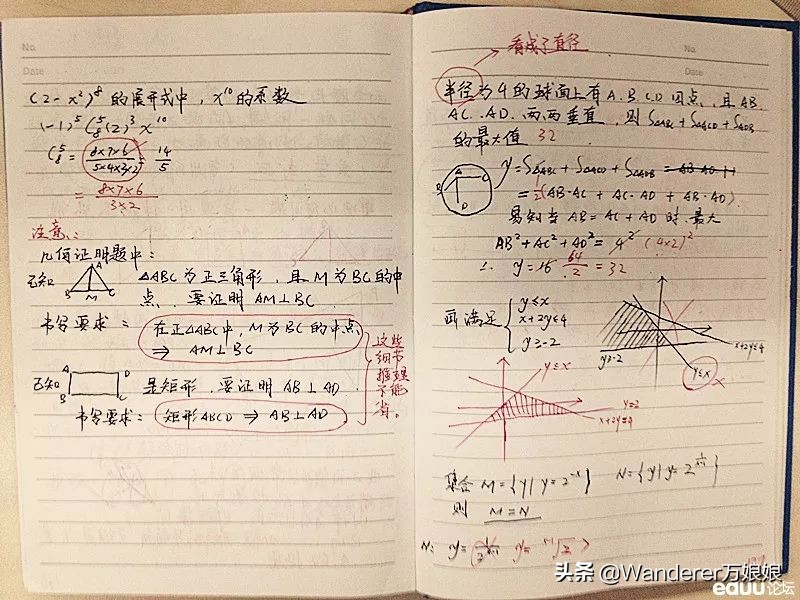 No.
Date
(2-x²)⁸ 的展开式中，x¹⁰ 的系数
(-1)⁵ C₈⁵ (2)³ x¹⁰
C₈⁵ = 8×7×6 / 5×4×3×2 = 14/5
= 8×7×6 / 3×2
注意：
几何证明题中：
已知 A B M C △ABC 为正三角形，且 M 为 BC 的中
点，要证明 AM⊥BC
书写要求： 在正△ABC中，M为BC的中点
⇒ AM⊥BC
这些细节推理不能省。
已知 A B C D 是矩形，要证明 AB⊥AD
书写要求： 矩形ABCD ⇒ AB⊥AD
看成了直径
No.
Date
半径为4的球面上有A.B.C.D四点，且AB.
AC.AD.两两垂直，则 S△ABC + S△ACD + S△ADB
的最大值 32
A B C D
y = S△ABC + S△ACD + S△ADB
= ½(AB·AC + AC·AD + AB·AD)
易知当 AB = AC + AD 时 最大
AB² + AC² + AD² = 4² (4×2)²
∴ y = 16 64/2 = 32
画满足 { y≤x
x+2y≤4
y≥-2
y≥-2
x+2y≤4
y≤x
y≤x
y=2
x+2y=4
集合 M = {y | y = 2⁻ˣ}
则 M=N
N:
头条 @Wanderer万娘娘
eduu论坛